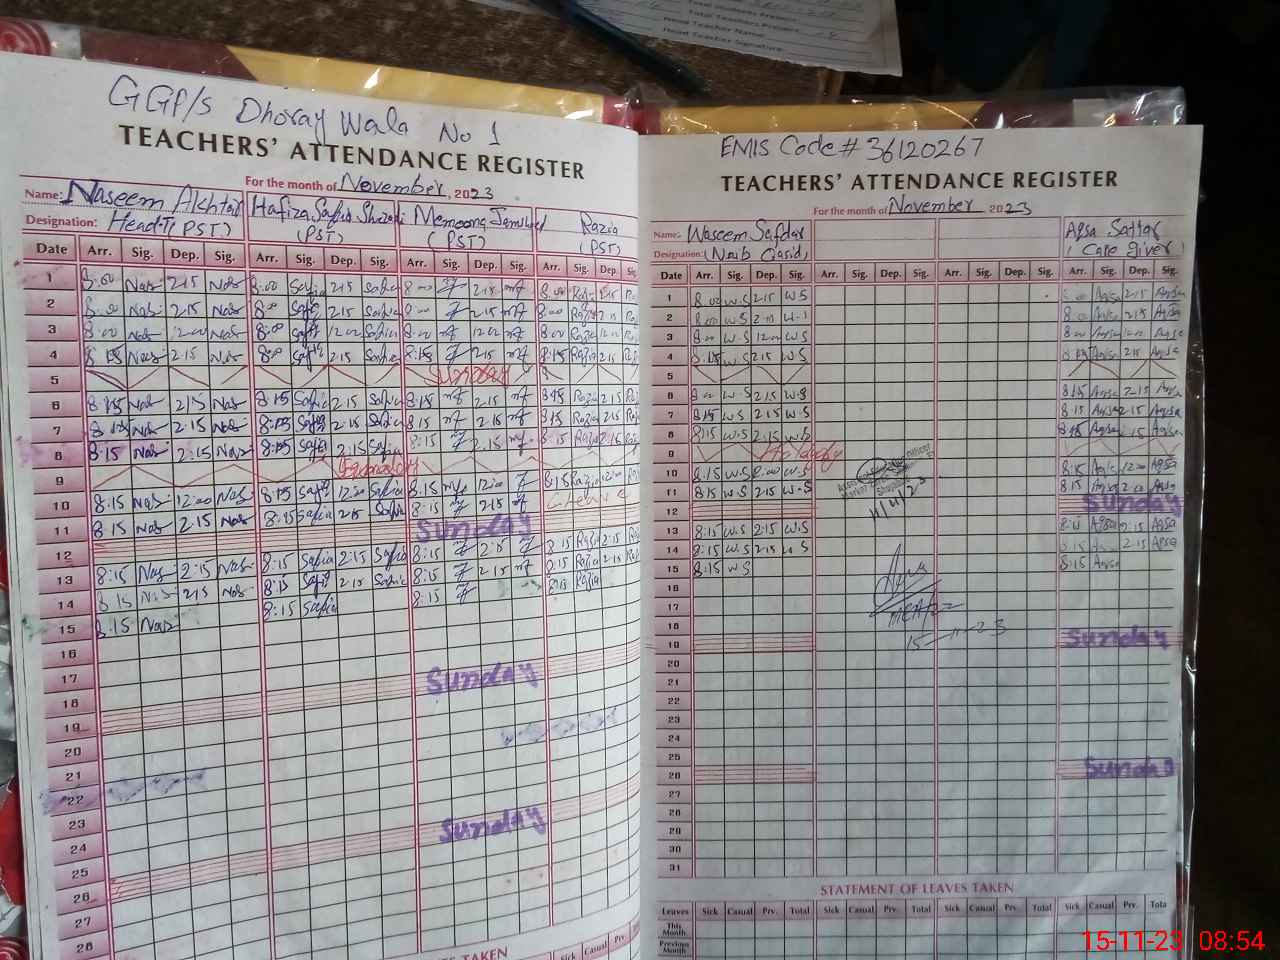 Head Teacher Name:
Head Teacher Signature
GGP/S Dhoray Wala No 1
TEACHERS' ATTENDANCE REGISTER
For the month of November, 2023
Name: Naseem Akhtar Hafiza Safia Memoona Jamshed Razia
Designation: Head-T(PST) (PST) (PST) (PST)
Date Arr. Sig. Dep. Sig. Arr. Sig. Dep. Sig. Arr. Sig. Dep. Sig. Arr. Sig. Dep. Sig.
1 8:00 Nas 2:15 Nas 8:00 Safia 2:15 Safia 8:00 2:15 8:00 Razia 2:15
2 8:00 Nas 2:15 Nas 8:00 Safia 2:15 Safia 8:00 2:15 8:00 Razia 2:15
3 8:00 Nas 12:00 Nas 8:00 Safia 12:00 Safia 8:00 12:00 8:00 Razia 12:00
4 8:15 Nas 2:15 Nas 8:00 Safia 2:15 Safia 8:15 2:15 8:15 Razia 2:15
5
6 8:15 Nas 2:15 Nas 8:15 Safia 2:15 Safia 8:15 2:15 8:15 Razia 2:15
7 8:15 Nas 2:15 Nas 8:15 Safia 2:15 Safia 8:15 2:15 8:15 Razia 2:15
8 8:15 Nas 2:15 Nas 8:15 Safia 2:15 Safia 8:15 2:15 8:15 Razia 2:15
9
10 8:15 Nas 12:00 Nas 8:15 Safia 12:00 Safia 8:15 12:00 8:15 Razia 12:00
11 8:15 Nas 2:15 Nas 8:15 Safia 2:15 Safia 8:15 2:15
12 Sunday
13 8:15 Nas 2:15 Nas 8:15 Safia 2:15 Safia 8:15 2:15 8:15 Razia 2:15
14 8:15 Nas 2:15 Nas 8:15 Safia 2:15 Safia 8:15 2:15 8:15 Razia 2:15
15 8:15 Nas 8:15 Safia 8:15 8:15 Razia
16
17
18
19 Sunday
20
21
22
23
24
25
26 Sunday
27
28
Casual Prv. Sick Casual
EMIS Code # 36120267
TEACHERS' ATTENDANCE REGISTER
For the month of November 2023
Name: Waseem Safdar Aqsa Sattar
Designation: (Naib Qasid) (Care giver)
Date Arr. Sig. Dep. Sig. Arr. Sig. Dep. Sig. Arr. Sig. Dep. Sig. Arr. Sig. Dep. Sig.
1 8:00 W.S 2:15 W.S 8:00 Aqsa 2:15 Aqsa
2 8:00 W.S W.S 8:00 Aqsa 2:15 Aqsa
3 8:00 W.S 12:00 W.S 8:00 Aqsa 12:00 Aqsa
4 8:15 W.S 2:15 W.S 8:15 Aqsa 2:15 Aqsa
5
6 8:00 W.S 2:15 W.S 8:15 Aqsa 2:15 Aqsa
7 8:15 W.S 2:15 W.S 8:15 Aqsa 2:15 Aqsa
8 8:15 W.S 2:15 W.S 8:15 Aqsa 2:15 Aqsa
9 Holiday
10 8:15 W.S 2:00 W.S 8:15 Aqsa 12:00 Aqsa
11 8:15 W.S 2:15 W.S 8:15 Aqsa 2:00 Aqsa
12 Sunday
13 8:15 W.S 2:15 W.S 8:15 Aqsa 2:15 Aqsa
14 8:15 W.S 2:15 W.S 8:15 Aqsa 2:15 Aqsa
15 8:15 W.S 8:15 Aqsa
16
17
18
15-11-23
19 Sunday
20
21
22
23
24
25
26 Sunday
27
28
29
30
31
STATEMENT OF LEAVES TAKEN
Leaves Sick Casual Prv. Total Sick Casual Prv. Total Sick Casual Prv. Total Sick Casual Prv. Tota
This Month
Previous Month
15-11-23 08:54